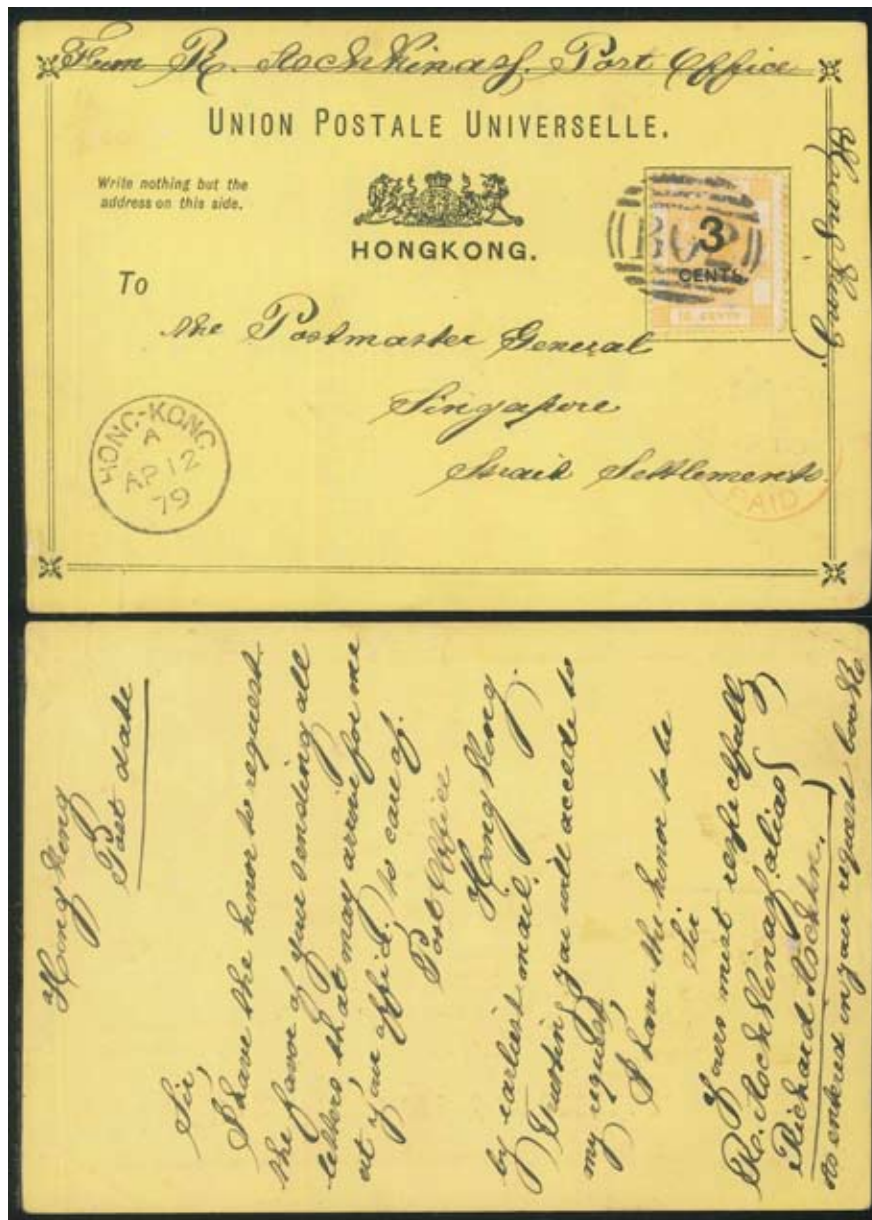 From R. Post Office
Hong Kong.
UNION POSTALE UNIVERSELLE.
Write nothing but the
address on this side.
HONGKONG.
B62
3
CENTS
To
the Postmaster General
Singapore
Strait Settlements
HONG-KONG
A
AP 12
79
PAID
Hong Kong
Post date
Sir,
I have the honor to request
the favor of your sending all
letters that may arrive for me
at your office, to care of.
Post Office
Hong Kong.
by earliest mail.
Trusting you will accede to
my request,
I have the honor to be
Sir
Yours most respectfully
R. alias
Richard
so entered in your request book